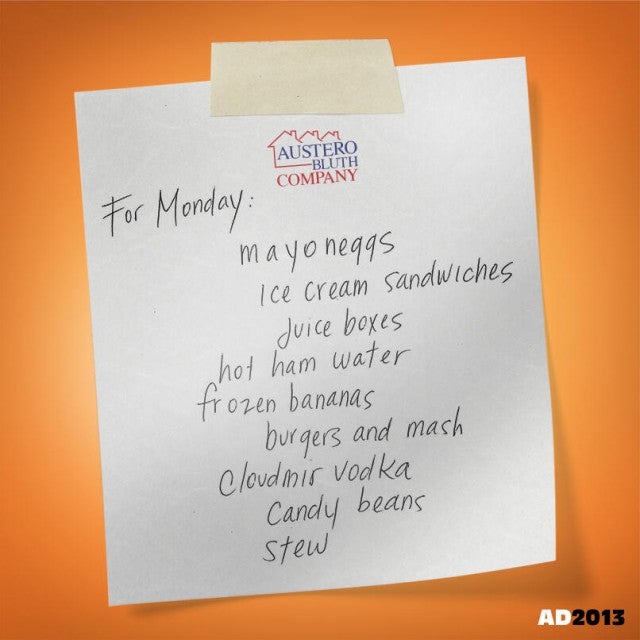 AUSTERO
BLUTH
COMPANY
For Monday:
mayoneggs
ice cream sandwiches
Juice boxes
hot ham water
frozen bananas
burgers and mash
Cloudmir vodka
Candy beans
Stew
AD2013